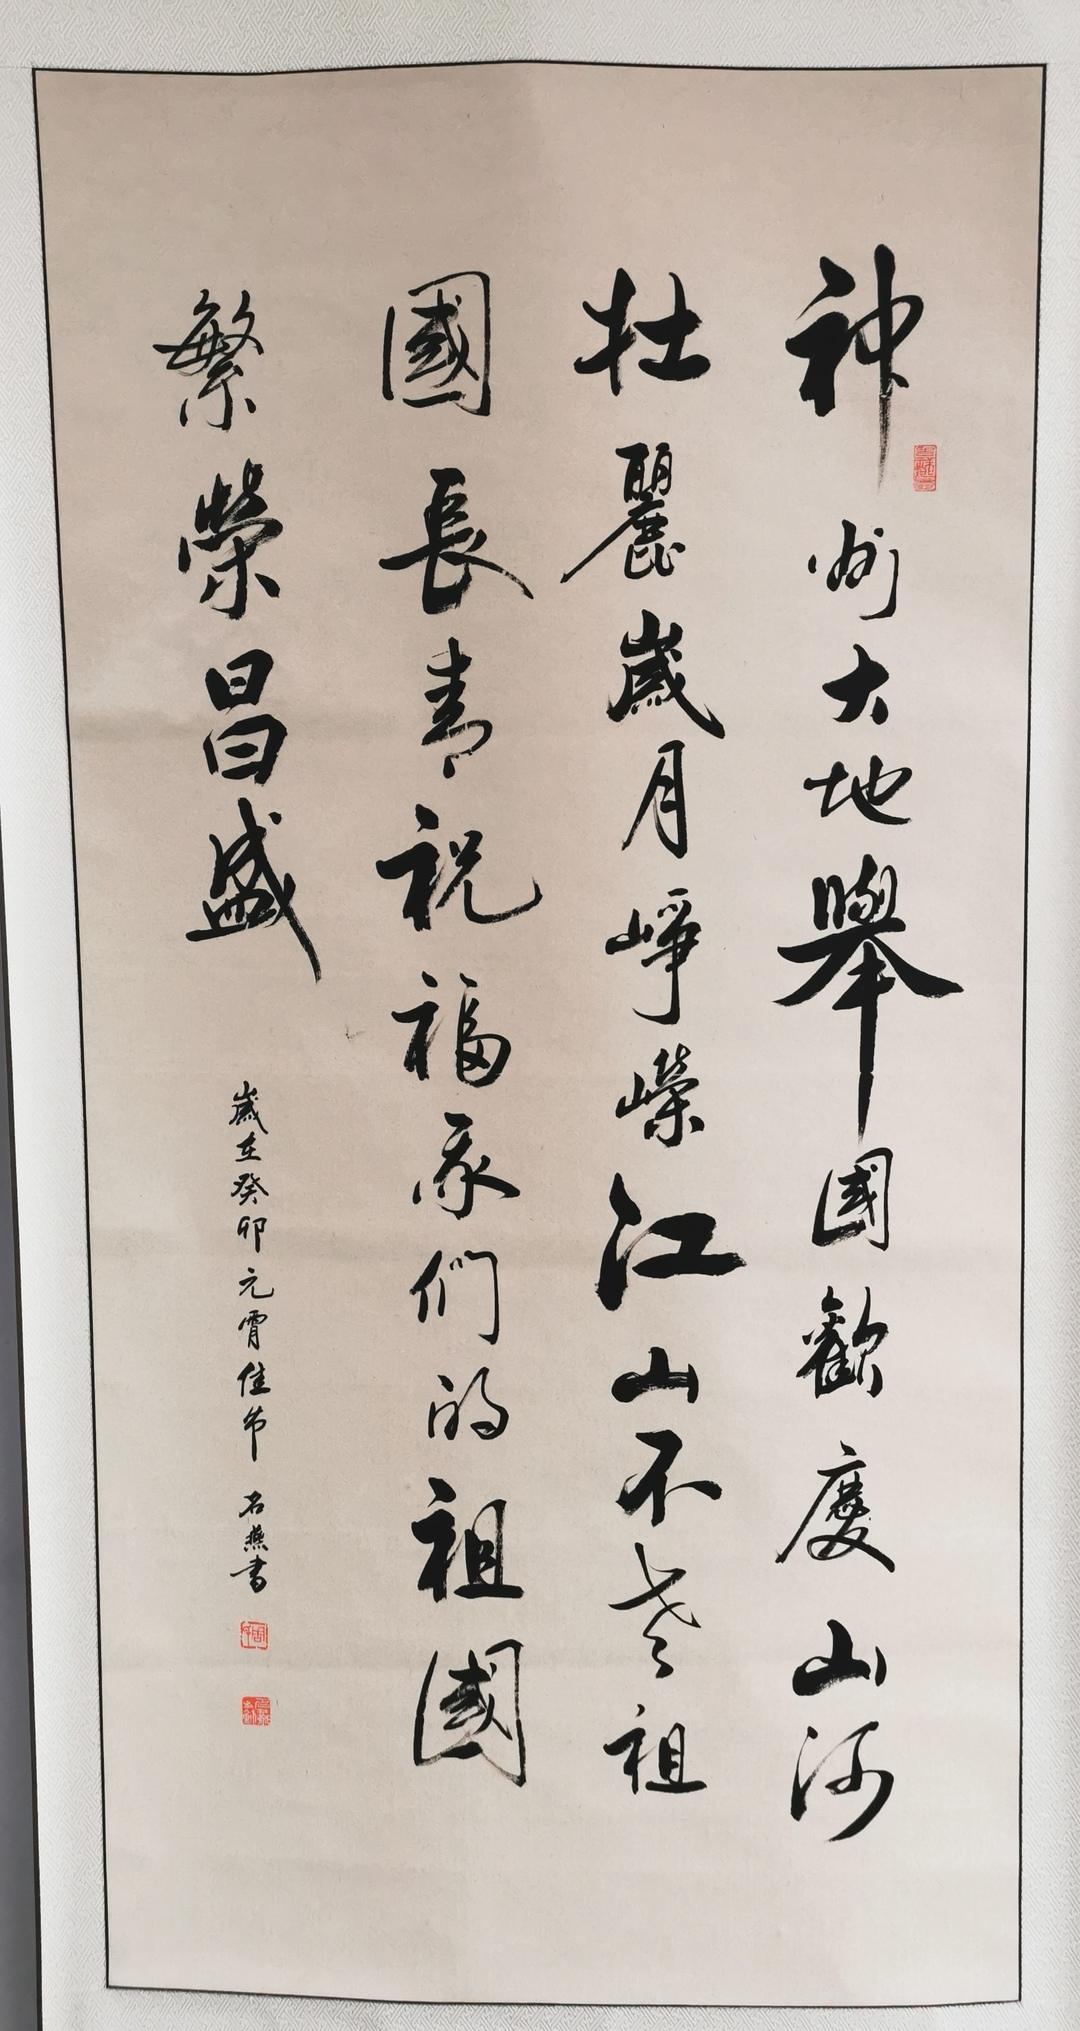 神州大地舉國歡慶山河
壯麗歲月崢嶸江山不老祖
國長青祝福我們的祖國
繁榮昌盛
歲在癸卯元宵佳节 石燕書